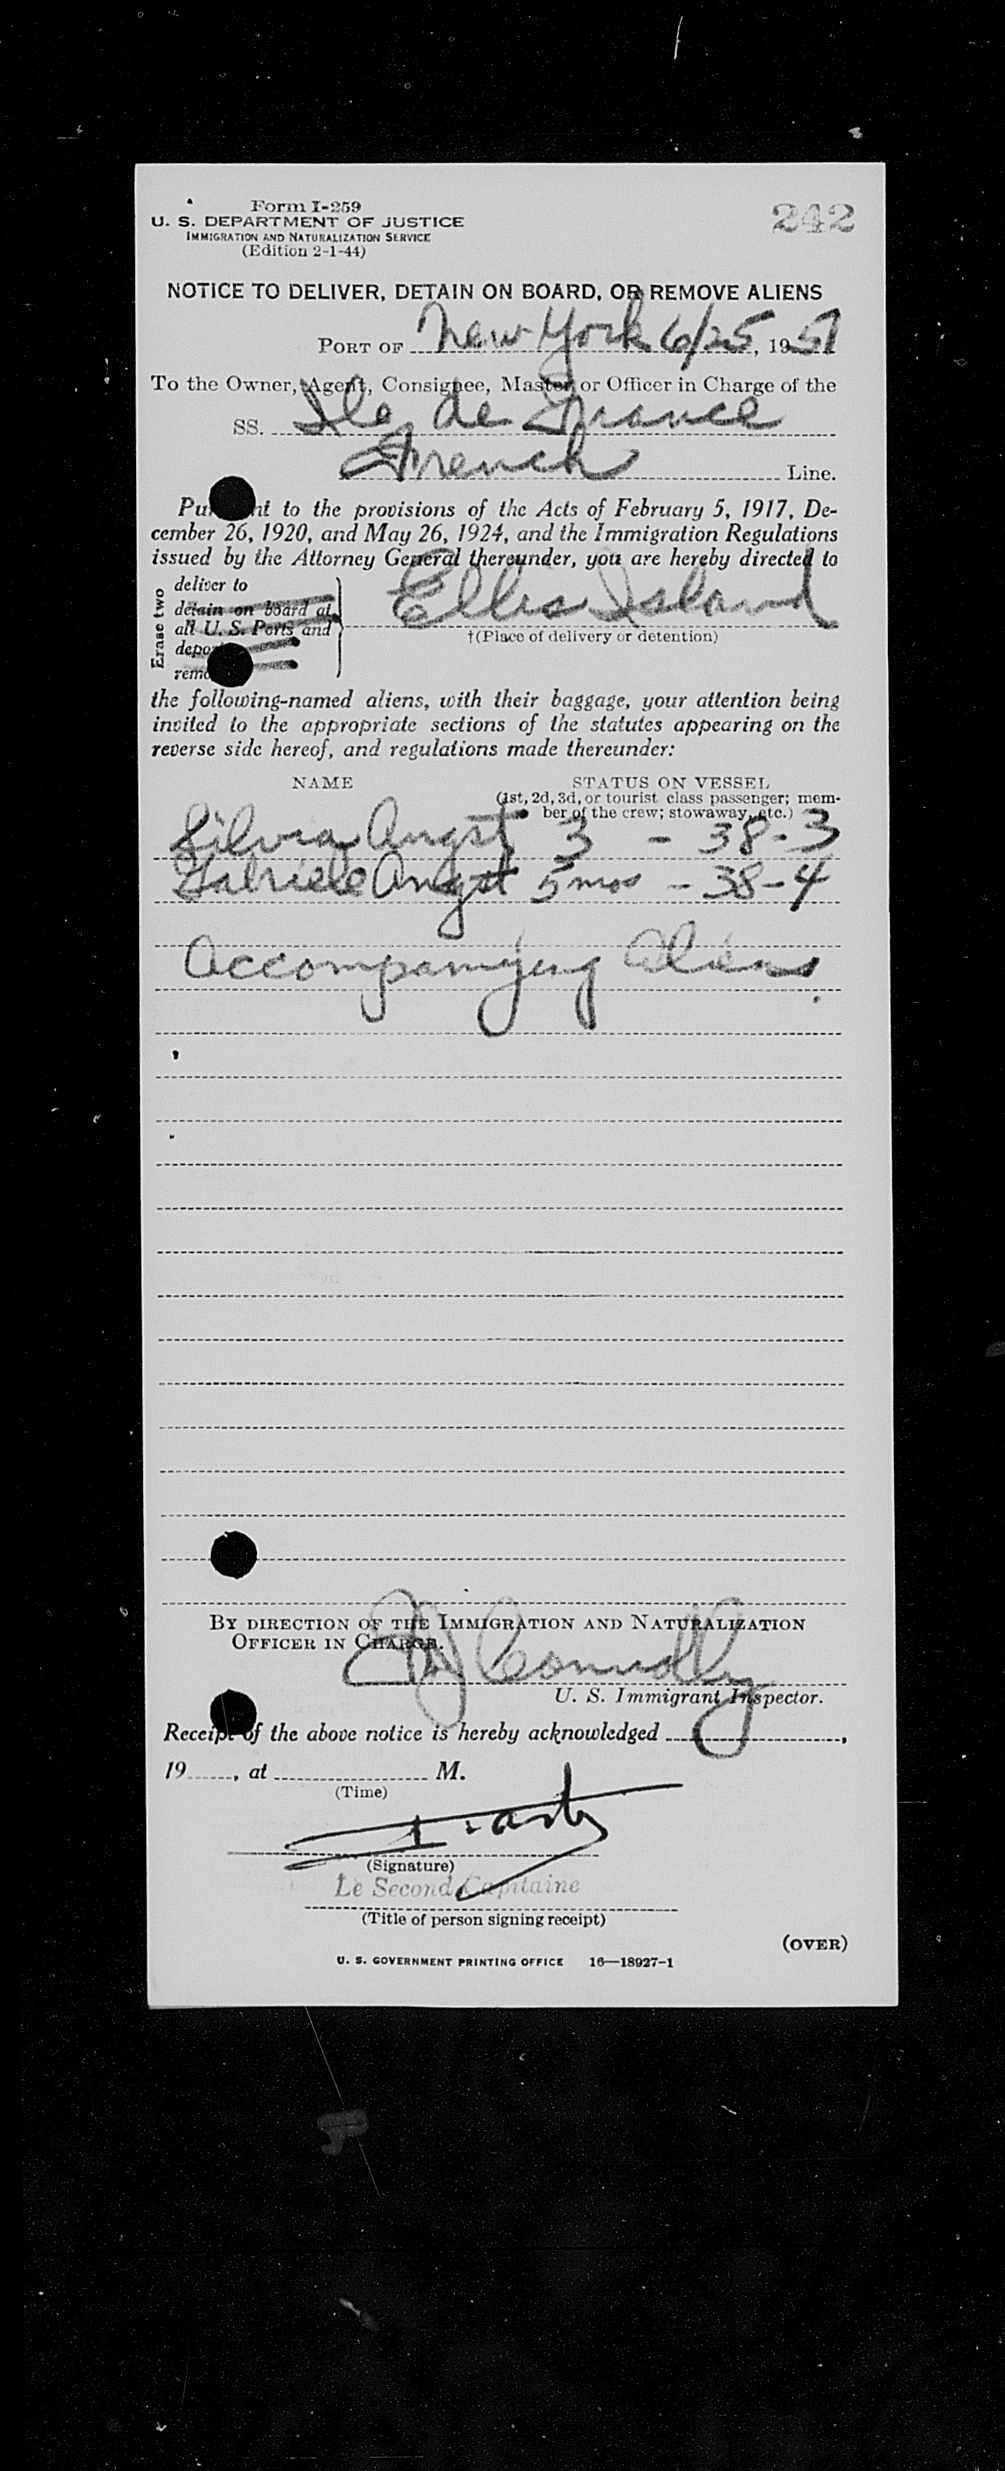 Form I-259
U. S. DEPARTMENT OF JUSTICE
IMMIGRATION AND NATURALIZATION SERVICE
(Edition 2-1-44)
242
NOTICE TO DELIVER, DETAIN ON BOARD, OR REMOVE ALIENS
PORT OF New York 6/25, 1951
To the Owner, Agent, Consignee, Master or Officer in Charge of the
SS. Ile de France
French Line.
to the provisions of the Acts of February 5, 1917, De-
cember 26, 1920, and May 26, 1924, and the Immigration Regulations
issued by the Attorney General thereunder, you are hereby directed to
Erase two
deliver to
detain on board at
all U. S. Ports and
Ellis Island
†(Place of delivery or detention)
the following-named aliens, with their baggage, your attention being
invited to the appropriate sections of the statutes appearing on the
reverse side hereof, and regulations made thereunder:
NAME STATUS ON VESSEL
(1st, 2d, 3d, or tourist class passenger; mem-
ber of the crew; stowaway, etc.)
Silvia Angst 3 - 38-3
Gabriele Angst 5 mos - 38-4
Accompanying Aliens
BY DIRECTION OF THE IMMIGRATION AND NATURALIZATION
OFFICER IN CHARGE.
Connolly
U. S. Immigrant Inspector.
Receipt of the above notice is hereby acknowledged ,
19 , at M.
(Time)
(Signature)
Le Second Capitaine
(Title of person signing receipt)
(OVER)
U. S. GOVERNMENT PRINTING OFFICE 16—18927-1